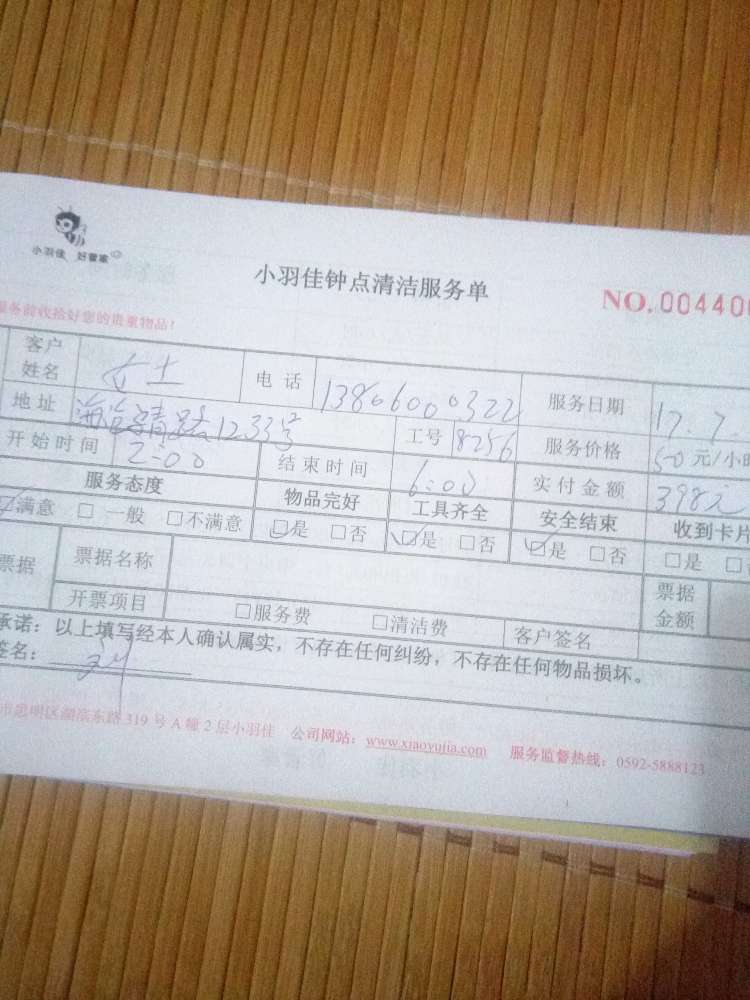 小羽佳 好管家
小羽佳钟点清洁服务单
NO.004400
服务前收拾好您的贵重物品!
客户姓名 女士 电话 13806000322 服务日期 17.7.
地址 1233号 工号 8256 服务价格 50元/小时
开始时间 2:00 结束时间 6:00 实付金额 398元
服务态度 物品完好 工具齐全 安全结束 收到卡片
☑满意 □一般 □不满意 ☑是 □否 ☑是 □否 ☑是 □否 □是 □
票据 票据名称 票据金额
开票项目 □服务费 □清洁费 客户签名
承诺:以上填写经本人确认属实,不存在任何纠纷,不存在任何物品损坏。
签名:
市思明区湖滨东路319号A幢2层小羽佳 公司网站:www.xiaoyujia.com 服务监督热线:0592-5888123